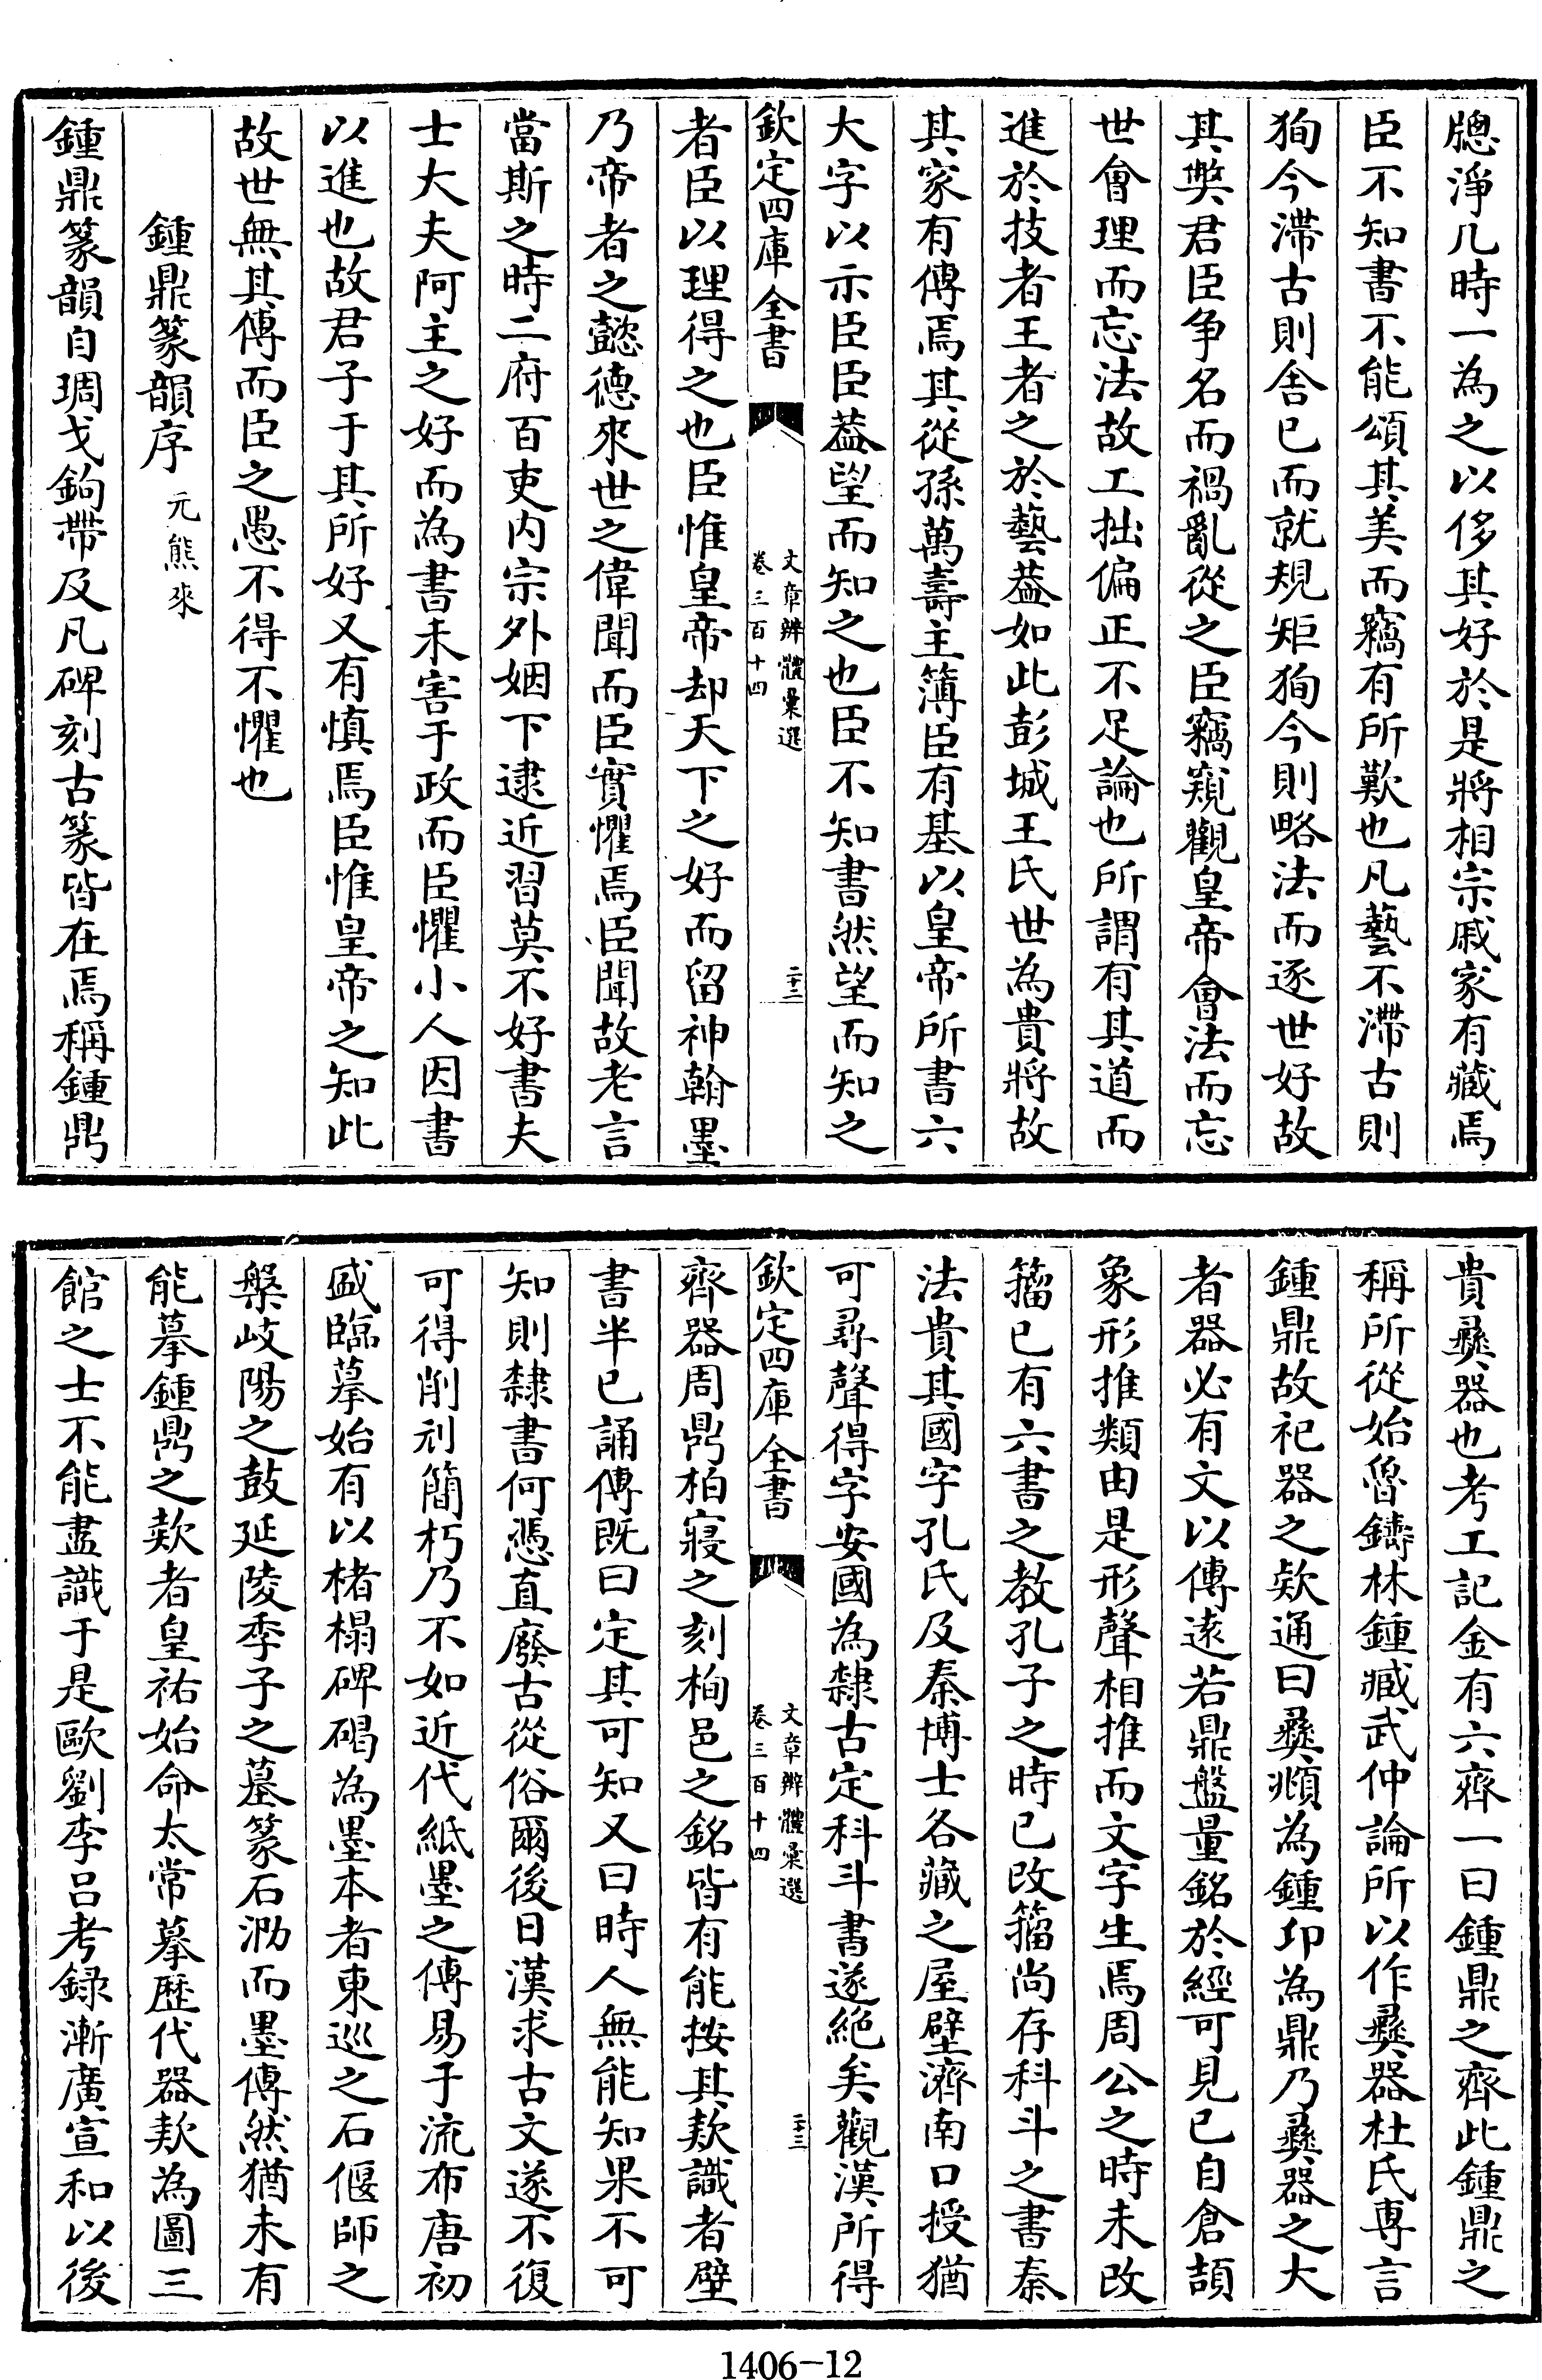 牕淨几時一為之以侈其好於是將相宗戚家有藏焉
臣不知書不能頌其美而竊有所歎也凡藝不滯古則
狥今滯古則舍已而就規矩狥今則略法而逐世好故
其獘君臣争名而禍亂從之臣竊窺觀皇帝會法而忘
世會理而忘法故工拙偏正不足論也所謂有其道而
進於技者王者之於藝葢如此彭城王氏世為貴將故
其家有傳焉其從孫萬壽主簿臣有基以皇帝所書六
大字以示臣臣葢望而知之也臣不知書然望而知之
欽定四庫全書
文章辨體彙選
卷三百十四
二十二
者臣以理得之也臣惟皇帝却天下之好而留神翰墨
乃帝者之懿德來世之偉聞而臣實懼焉臣聞故老言
當斯之時二府百吏内宗外姻下逮近習莫不好書夫
士大夫阿主之好而為書未害于政而臣懼小人因書
以進也故君子于其所好又有慎焉臣惟皇帝之知此
故世無其傳而臣之愚不得不懼也
鍾鼎篆韻序 元熊來
鍾鼎篆韻自琱戈鉤帶及凡碑刻古篆皆在焉稱鍾鼎
貴彞器也考工記金有六齊一曰鍾鼎之齊此鍾鼎之
稱所從始魯鑄林鍾臧武仲論所以作彞器杜氏専言
鍾鼎故祀器之欵通曰彞頫為鍾卬為鼎乃彞器之大
者器必有文以傳逺若鼎盤量銘於經可見已自倉頡
象形推類由是形聲相推而文字生焉周公之時未改
籀已有六書之教孔子之時已改籀尚存科斗之書秦
法貴其國字孔氏及秦博士各藏之屋壁濟南口授猶
可尋聲得字安國為隸古定科斗書遂絶矣觀漢所得
欽定四庫全書
文章辨體彙選
卷三百十四
二十三
齊器周鼎柏寢之刻栒邑之銘皆有能按其欵識者壁
書半已誦傳既曰定其可知又曰時人無能知果不可
知則隸書何憑直廢古從俗爾後日漢求古文遂不復
可得削刓簡朽乃不如近代紙墨之傳易于流布唐初
盛臨摹始有以楮榻碑碣為墨本者東巡之石偃師之
槃岐陽之鼓延陵季子之墓篆石泐而墨傳然猶未有
能摹鍾鼎之欵者皇祐始命太常摹歴代器欵為圖三
館之士不能盡識于是歐劉李吕考録漸廣宣和以後
1406-12